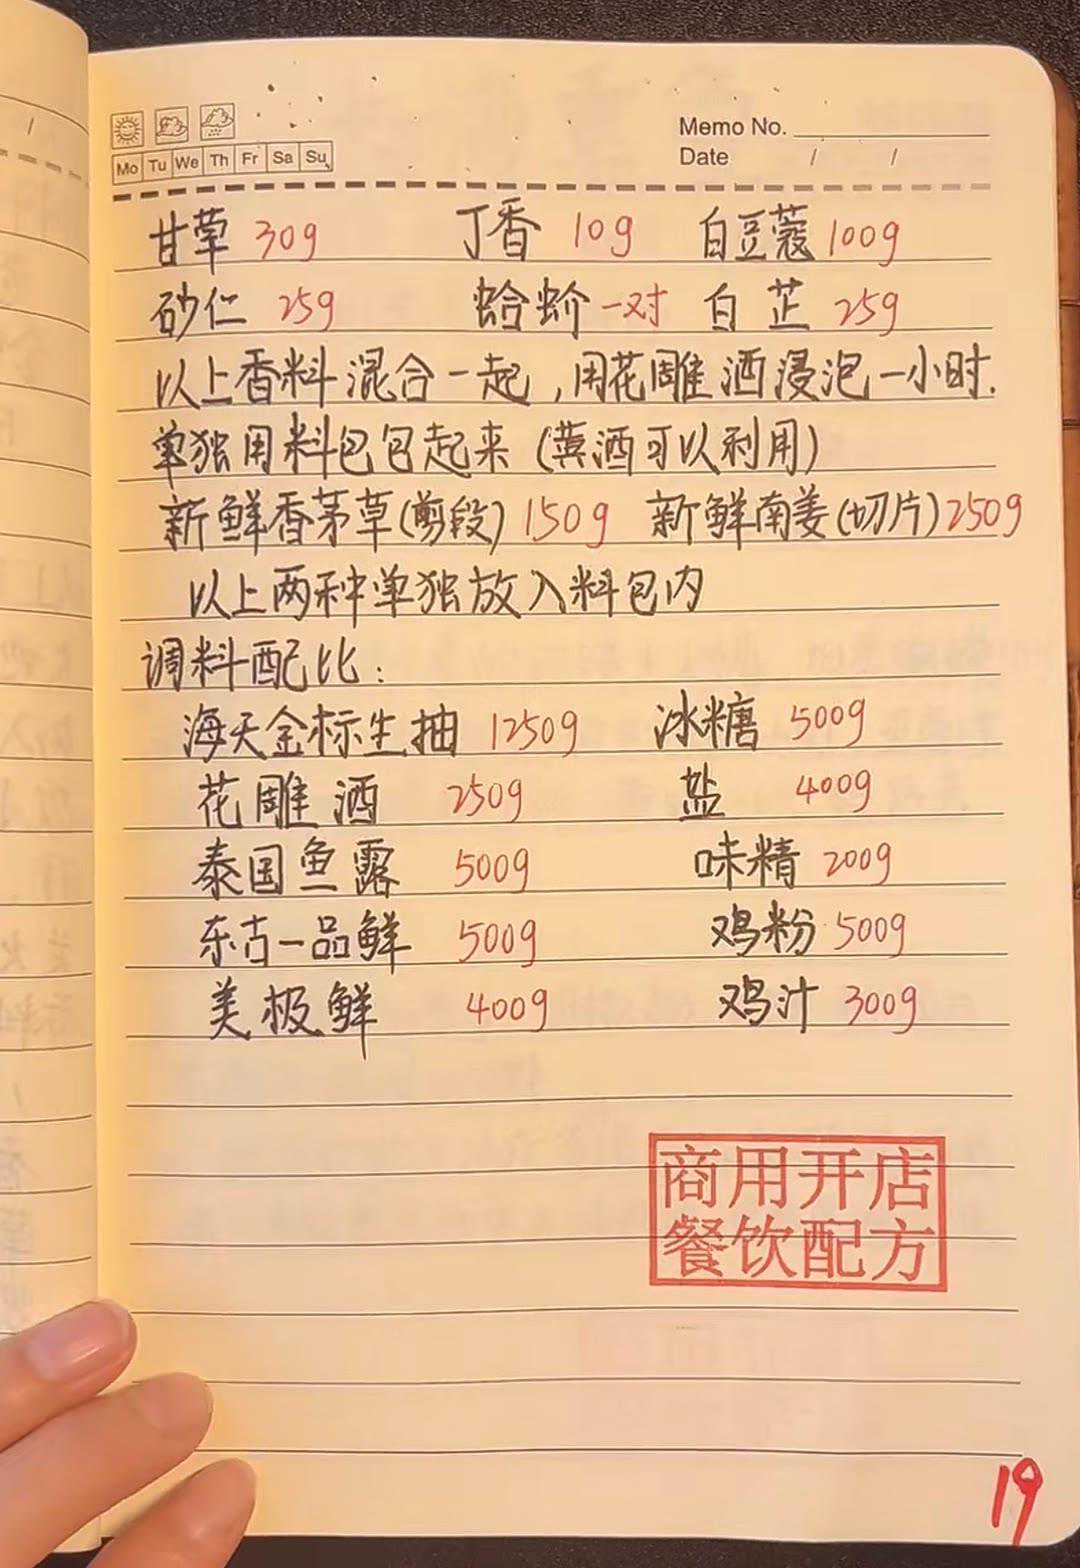 Memo No.
Mo Tu We Th Fr Sa Su
Date / /
甘草 30g 丁香 10g 白豆蔻 100g
砂仁 25g 蛤蚧 一对 白芷 25g
以上香料混合一起,用花雕酒浸泡一小时.
单独用料包包起来(黄酒可以利用)
新鲜香茅草(剪段)150g 新鲜南姜(切片)250g
以上两种单独放入料包内
调料配比:
海天金标生抽 1250g 冰糖 500g
花雕酒 250g 盐 400g
泰国鱼露 500g 味精 200g
东古一品鲜 500g 鸡粉 500g
美极鲜 400g 鸡汁 300g
商用开店
餐饮配方
19